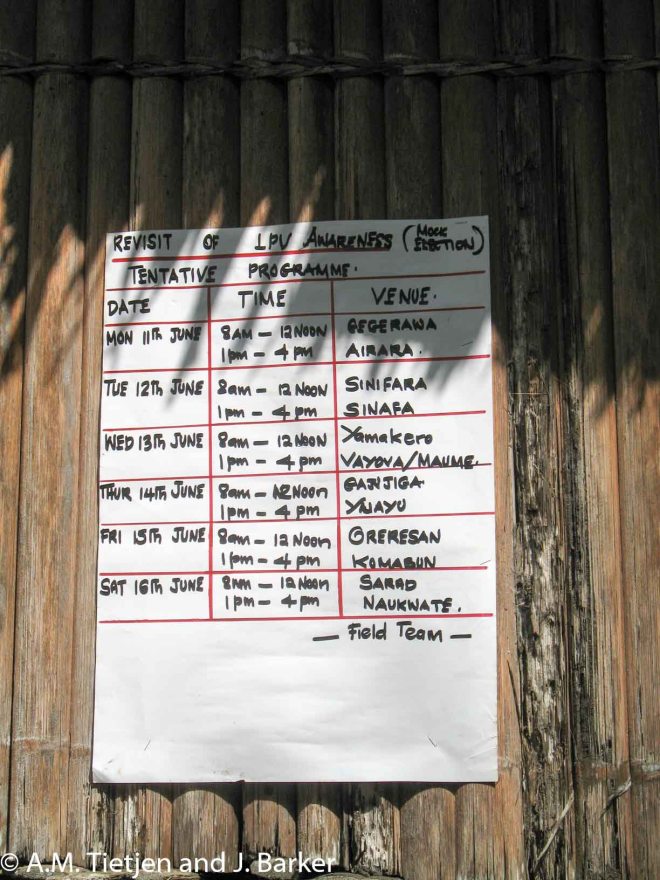 REVISIT OF LPV AWARENESS (MOCK ELECTION)
TENTATIVE PROGRAMME.
DATE TIME VENUE.
MON 11TH JUNE 8AM – 12NOON GEGERAWA
1pm – 4pm AIRARA.
TUE 12TH JUNE 8am – 12NOON SINIFARA
1pm – 4pm SINAFA
WED 13TH JUNE 8am – 12NOON Yamakero
1pm – 4pm VAYOVA/MAUME.
THUR 14TH JUNE 8am – 12Noon GANJIGA
1pm – 4pm YUAYU
FRI 15TH JUNE 8am – 12Noon ORERESAN
1pm – 4pm KOMABUN
SAT 16TH JUNE 8am – 12Noon SARAD
1pm – 4pm NAUKWATE.
— Field Team —
© A.M. Tietjen and J. Barker